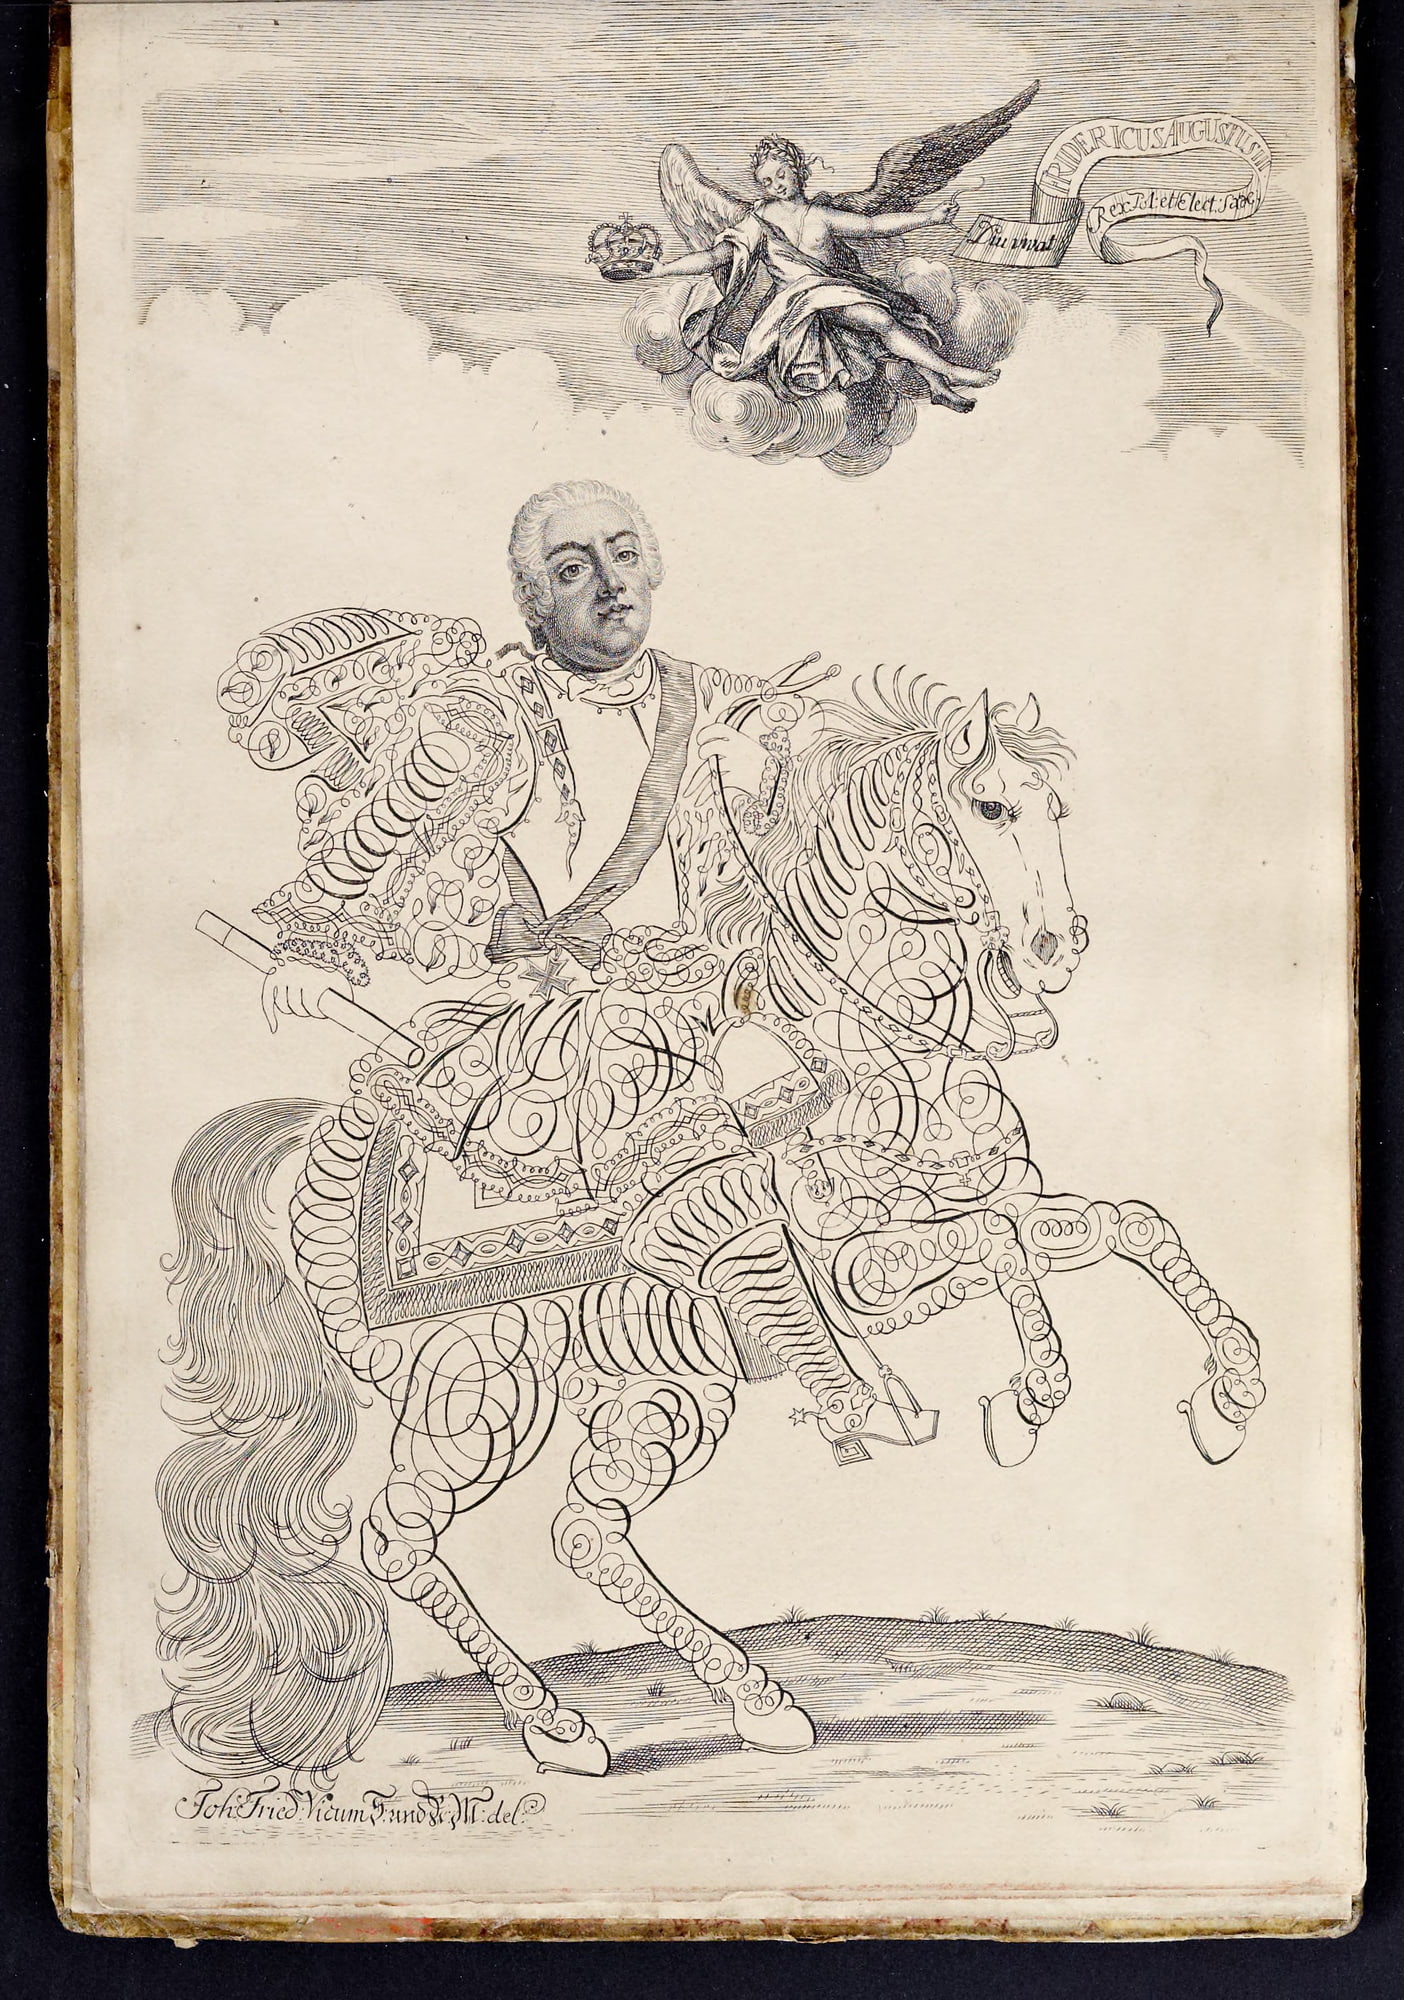 Diu vivat
FRIDERICUS AUGUSTUS III
Rex Pol: et Elect: Sax:
Joh: Fried: Vicum S: und R: M: del: